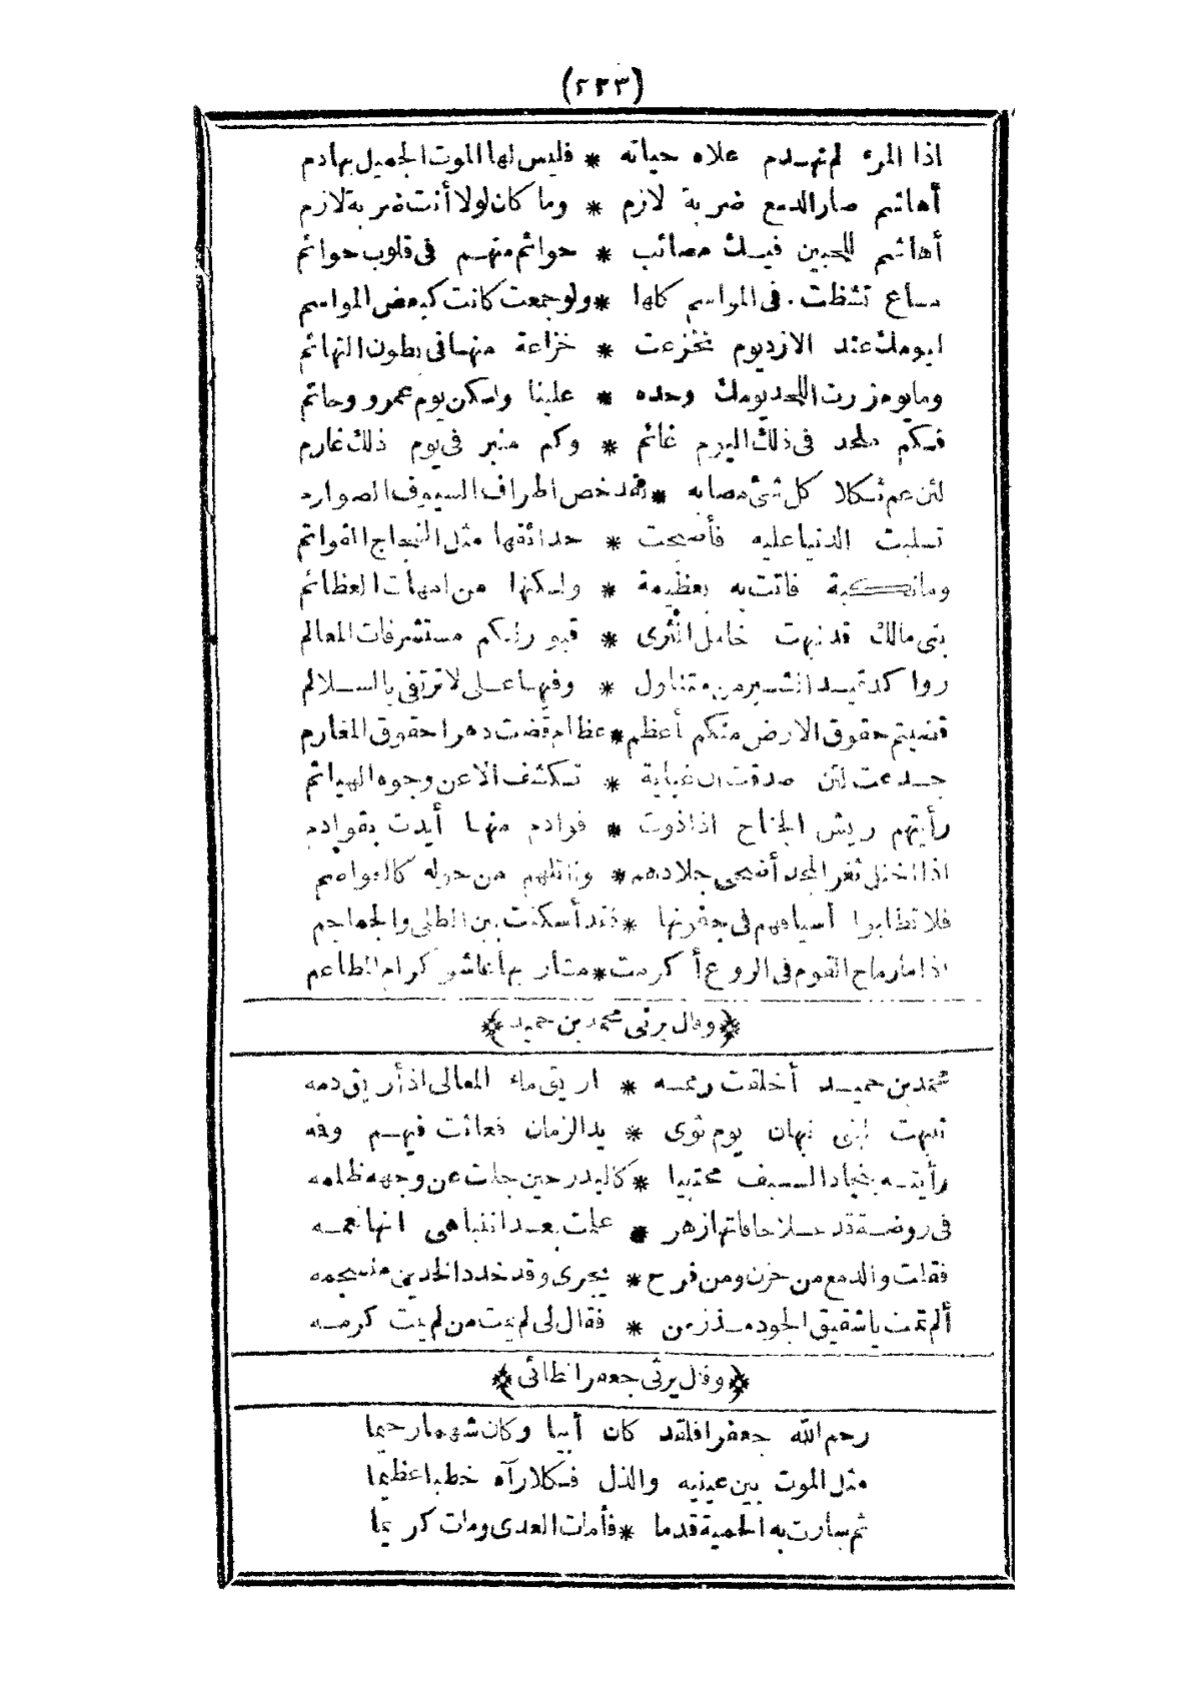 (٢٣٣)
اذا المرء لم تهدم علاه حياته * فليس لها الموت الجميل بهادم
أهاشم صار الدمع ضربة لازم * وما كان لولا أنت ضربة لازم
أهاشم للحيين فيك مصائب * حوائم منهم فى قلوب حوائم
مساع تشظت فى المواسم كلها * ولو جمعت كانت كبعض المواسم
ايومك عند الازد يوم تخزعت * خزاعة منها فى بطون التهائم
وما يوم زرت اللحد يومك وحده * علينا ولكن يوم عمرو وحاتم
فكم ملحد فى ذلك اليوم غانم * وكم منبر فى يوم ذلك غارم
لئن عم ثكلا كل شئ مصابه * لقد خص اطراف السيوف الصوارم
تسلبت الدنيا عليه فأصبحت * حدائقها مثل الفجاج القواتم
وما نكبة فاتت به بعظيمة * ولكنها من امهات العظائم
بنى مالك قد نبهت خامل الثرى * قبور لكم مستشرفات المعالم
رواكد قيد الشبر من متناول * وفيها على لا ترتقى بالسلالم
قضيتم حقوق الارض منكم أعظم * عظام قضت دهرا حقوق المغارم
صدقت * تكشف الا عن وجوه الهياثم
رأيتهم ريش الجناح اذا ذوت * قوادم منها أيدت بقوادم
اذا اختل ثغر المجد أضحى جلادهم * ونائلهم من حوله كالعواصم
فلا تطلبوا أسيافهم فى جفونها * فقد أسكنت بين الطلى والجماجم
اذا ما رماح القوم فى الروع أكرمت * مشاربها عاشوا كرام المطاعم
﴿وقال يرثى محمد بن حميد﴾
محمد بن حميد أخلقت رممه * اريق ماء المعالى اذ أريق دمه
تنبهت لبنى نبهان يوم ثوى * يد الزمان فعاثت فيهم وفمه
رأيته بنجاد السيف محتبيا * كالبدر حين جلت عن وجهه ظلمه
فى روضة قد علا حافاتها زهر * علمت بعد انتباهى انها نعمه
فقلت والدمع من حزن ومن فرح * يجرى وقد خدد الخدين منسجمه
ألم تمت يا شقيق الجود مذ زمن * فقال لى لم يمت من لم يمت كرمه
﴿وقال يرثى جعفرا الطائى﴾
رحم الله جعفرا فلقد كان أبيا وكان شهما رحيما
مثل الموت بين عينيه والذل فكلا رآه خطبا عظيما
ثم سارت به الحمية قدما * فأمات العدى ومات كريما